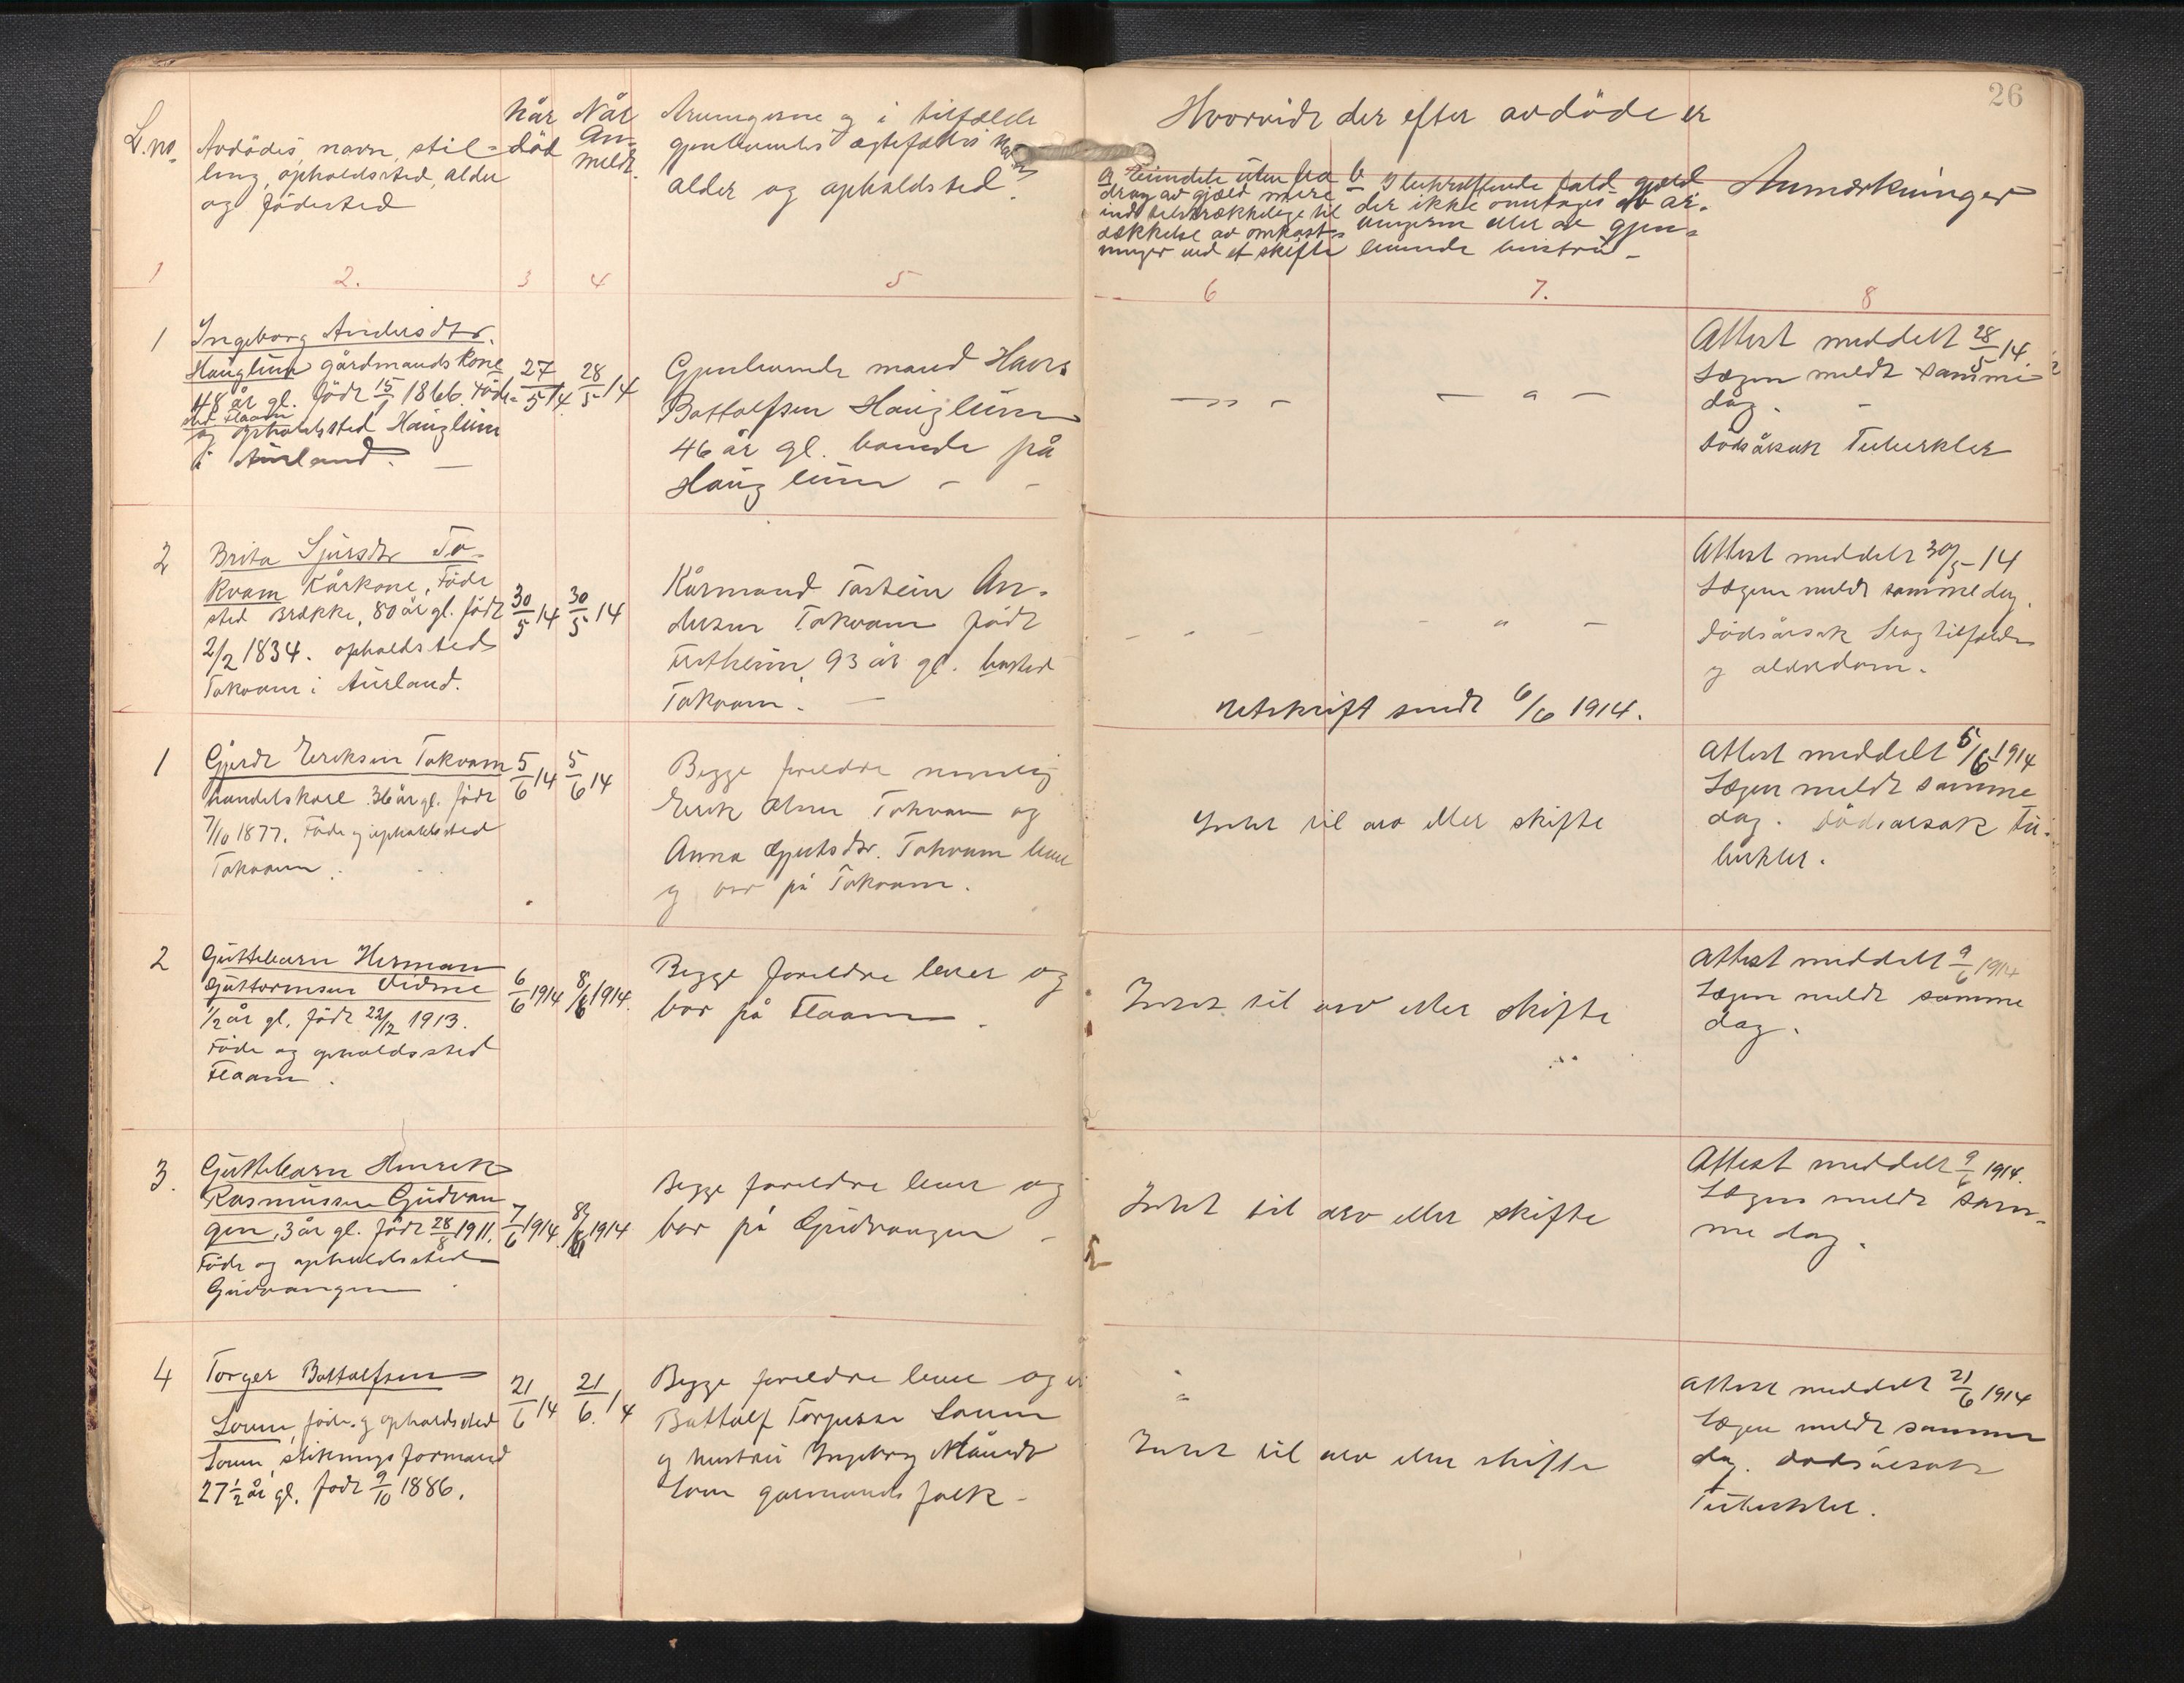 26
L.no.
Avdødes navn, stil=
ling, opholdssted, alder
og fødested
Når
død
Når
An=
meldt.
Arvingerne og i tilfælde
gjenlevendes ægtefælles navn
alder og opholdsted.
Hvorvidt der efter avdøde er
a, eiendele uten fra
drag av gjæld mere
ind tilstrækkelige til
dækkelse av omkost=
ninger ved et skifte
b I bekræftende fald gjæld
der ikke overtages av ar=
vingerne eller av gjen=
levende hustru -
Anmærkninger
1
2.
3
4
5
6
7.
8
1
Ingeborg Andersdtr.
Hauglum gårdmands kone
48 år gl. født 15/1 1866. Føde=
sted Flaam
og opholdsted Hauglum
i Aurland. -
27/5 14
28/5 14
Gjenlevende mand Hans
Bottolfsen Hauglum
46 år gl. boende på
Hauglum - -
- " -
- " -
Attest meddelt 28/5 14.
Lægen meldt samme
dag. -
Dødsårsak Tuberkler
2
Brita Sjursdtr To=
kvam Kårkone, Føde
sted Brække, 80 år gl. født
2/2 1834. opholdsted
Tokvam i Aurland.
30/5 14
30/5 14
Kårmand Torstein An=
dersen Tokvam født
Fretheim, 93 år gl. bosted
Tokvam. -
- - -
- " -
Utskrift sendt 6/6 1914.
Attest meddelt 30/5-14
Lægen meldt samme dag.
Dødsårsak Slagtilfælde
og alderdom.
1
Gjerdt Eriksen Tokvam
handelskarl 36 år gl. født
7/10 1877. Føde og opholdssted
Tokvam.
5/6 14
5/6 14
Begge foreldre nemlig
Erik Olsen Tokvam og
Anna Gjertsdtr. Tokvam lever
og bor på Tokvam.
Intet til arv eller skifte
Attest meddelt 5/6 1914
Lægen meldt samme
dag. Dødsårsak Tu=
berkler.
2
Guttebarn Herman
Guttormsen Vidme
1/2 år gl. født 22/12 1913.
Føde og opholdssted
Flaam.
6/6 1914
8/6 1914.
Begge foreldre lever og
bor på Flaam.
Intet til arv eller skifte
Attest meddelt 9/6 1914
Lægen meldt samme
dag.
3.
Guttebarn Henrik
Rasmussen Gudvan
gen, 3 år gl. født 28/8 1911.
Føde og opholdssted
Gudvangen
7/6 1914
8/6 1914
Begge foreldre lever og
bor på Gudvangen -
Intet til arv eller skifte
Attest meddelt 9/6 1914.
Lægen meldt sam=
me dag.
4
Torger Bottolfsen
Loven, føde og opholdssted
Loven, stikningsformand
27 1/2 år gl. født 9/10 1886.
21/6 14
21/6. 14
Begge foreldre lever og er
Bottolf Torgersen Loven
og hustru Ingeborg
Loven gårmandsfolk -
Intet til arv eller skifte
Attest meddelt 21/6 1914
Lægen meldt samme
dag. Dødsårsak
Tuberkler.